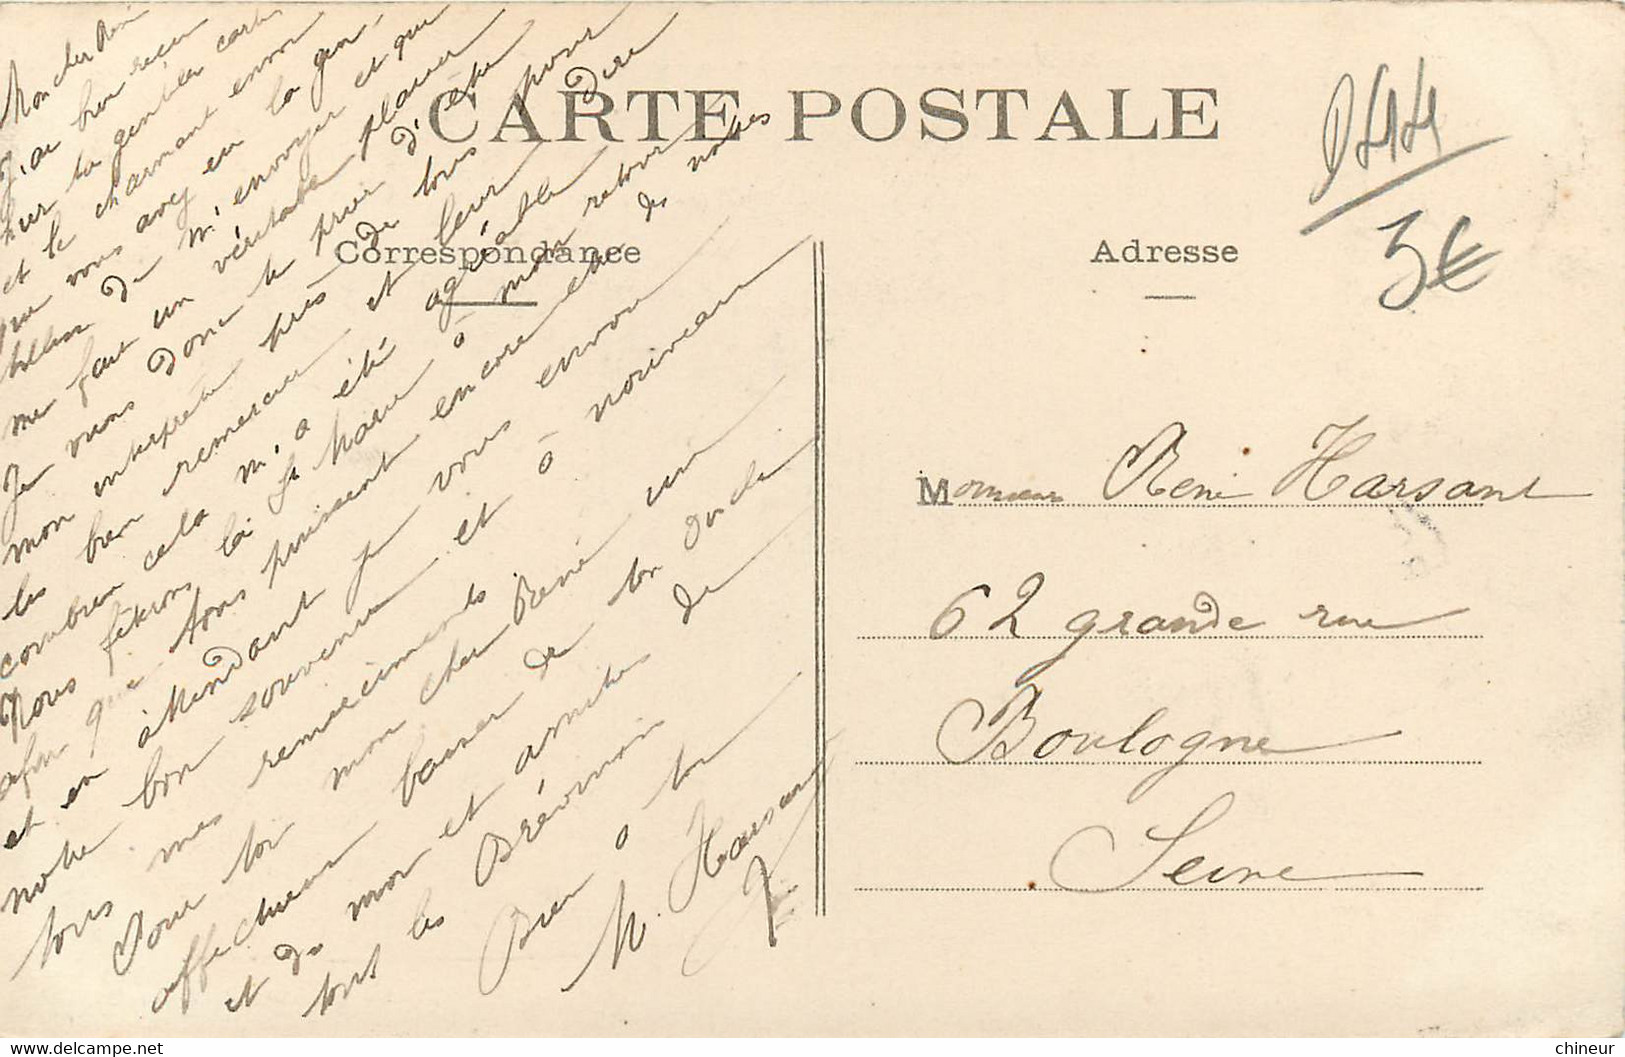 CARTE POSTALE
Correspondance
Adresse
Mon cher René
J'ai bien reçu
hier ta gentille carte
et le charmant envoi
que vous avez eu la gen-
tillesse de m'envoyer et que
me fait un véritable plaisir
Je viens donc te prier d'être
mon interprète près de tous pour
les bien remercier et leur dire
combien cela m'a été agréable
Nous fêterons la St Marie à mon retour
afin que tous puissent encore être des nôtres
et en attendant je vous envoie
notre bon souvenir et à nouveau
tous mes remerciements
Pour toi mon cher René un
affectueux baiser de ton oncle
et de mon et amités de
tous les Prévinois
Bien à toi
M. Harsant
Monsieur René Harsant
62 grande rue
Boulogne
Seine
D44
3€
chineur